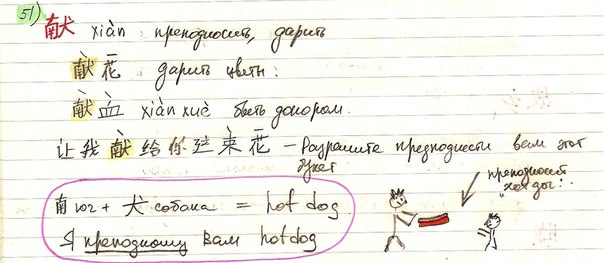 51) 献 xiàn: преподносить, дарить
献花 дарить цветы:
献血 xiàn xuè быть донором.
让我献给你这束花 – Разрешите преподнести вам этот букет
преподносит хот дог!
南 юг + 犬 собака = hot dog
Я преподношу вам hotdog